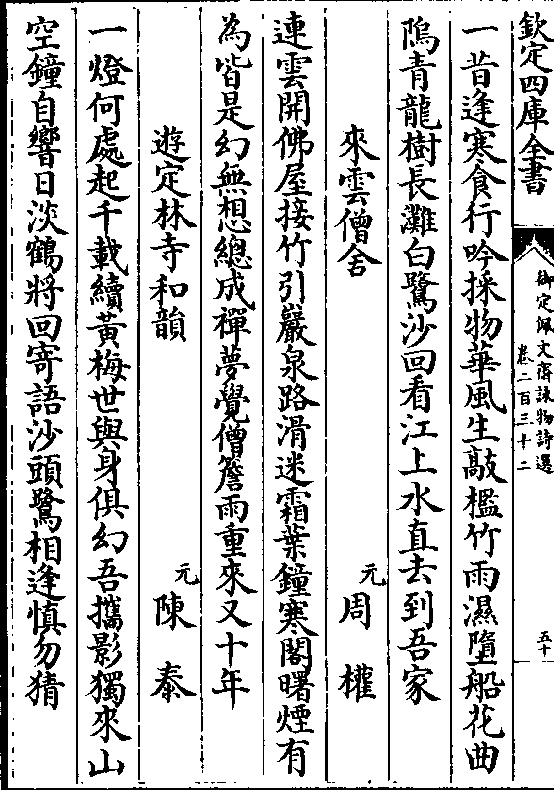 欽定四庫全書
御定佩文齋詠物詩選
卷二百三十二
五十
一昔逢寒食行吟採物華風生敲檻竹雨濕墮船花曲
隝青龍樹長灘白鷺沙回看江上水直去到吾家
來雲僧舍 元 周權
連雲開佛屋接竹引巖泉路滑迷霜葉鐘寒閣曙煙有
為皆是幻無想總成禪夢覺僧簷雨重來又十年
遊定林寺和韻 元 陳泰
一燈何處起千載續黃梅世與身俱幻吾攜影獨來山
空鐘自響日淡鶴將回寄語沙頭鷺相逢慎勿猜